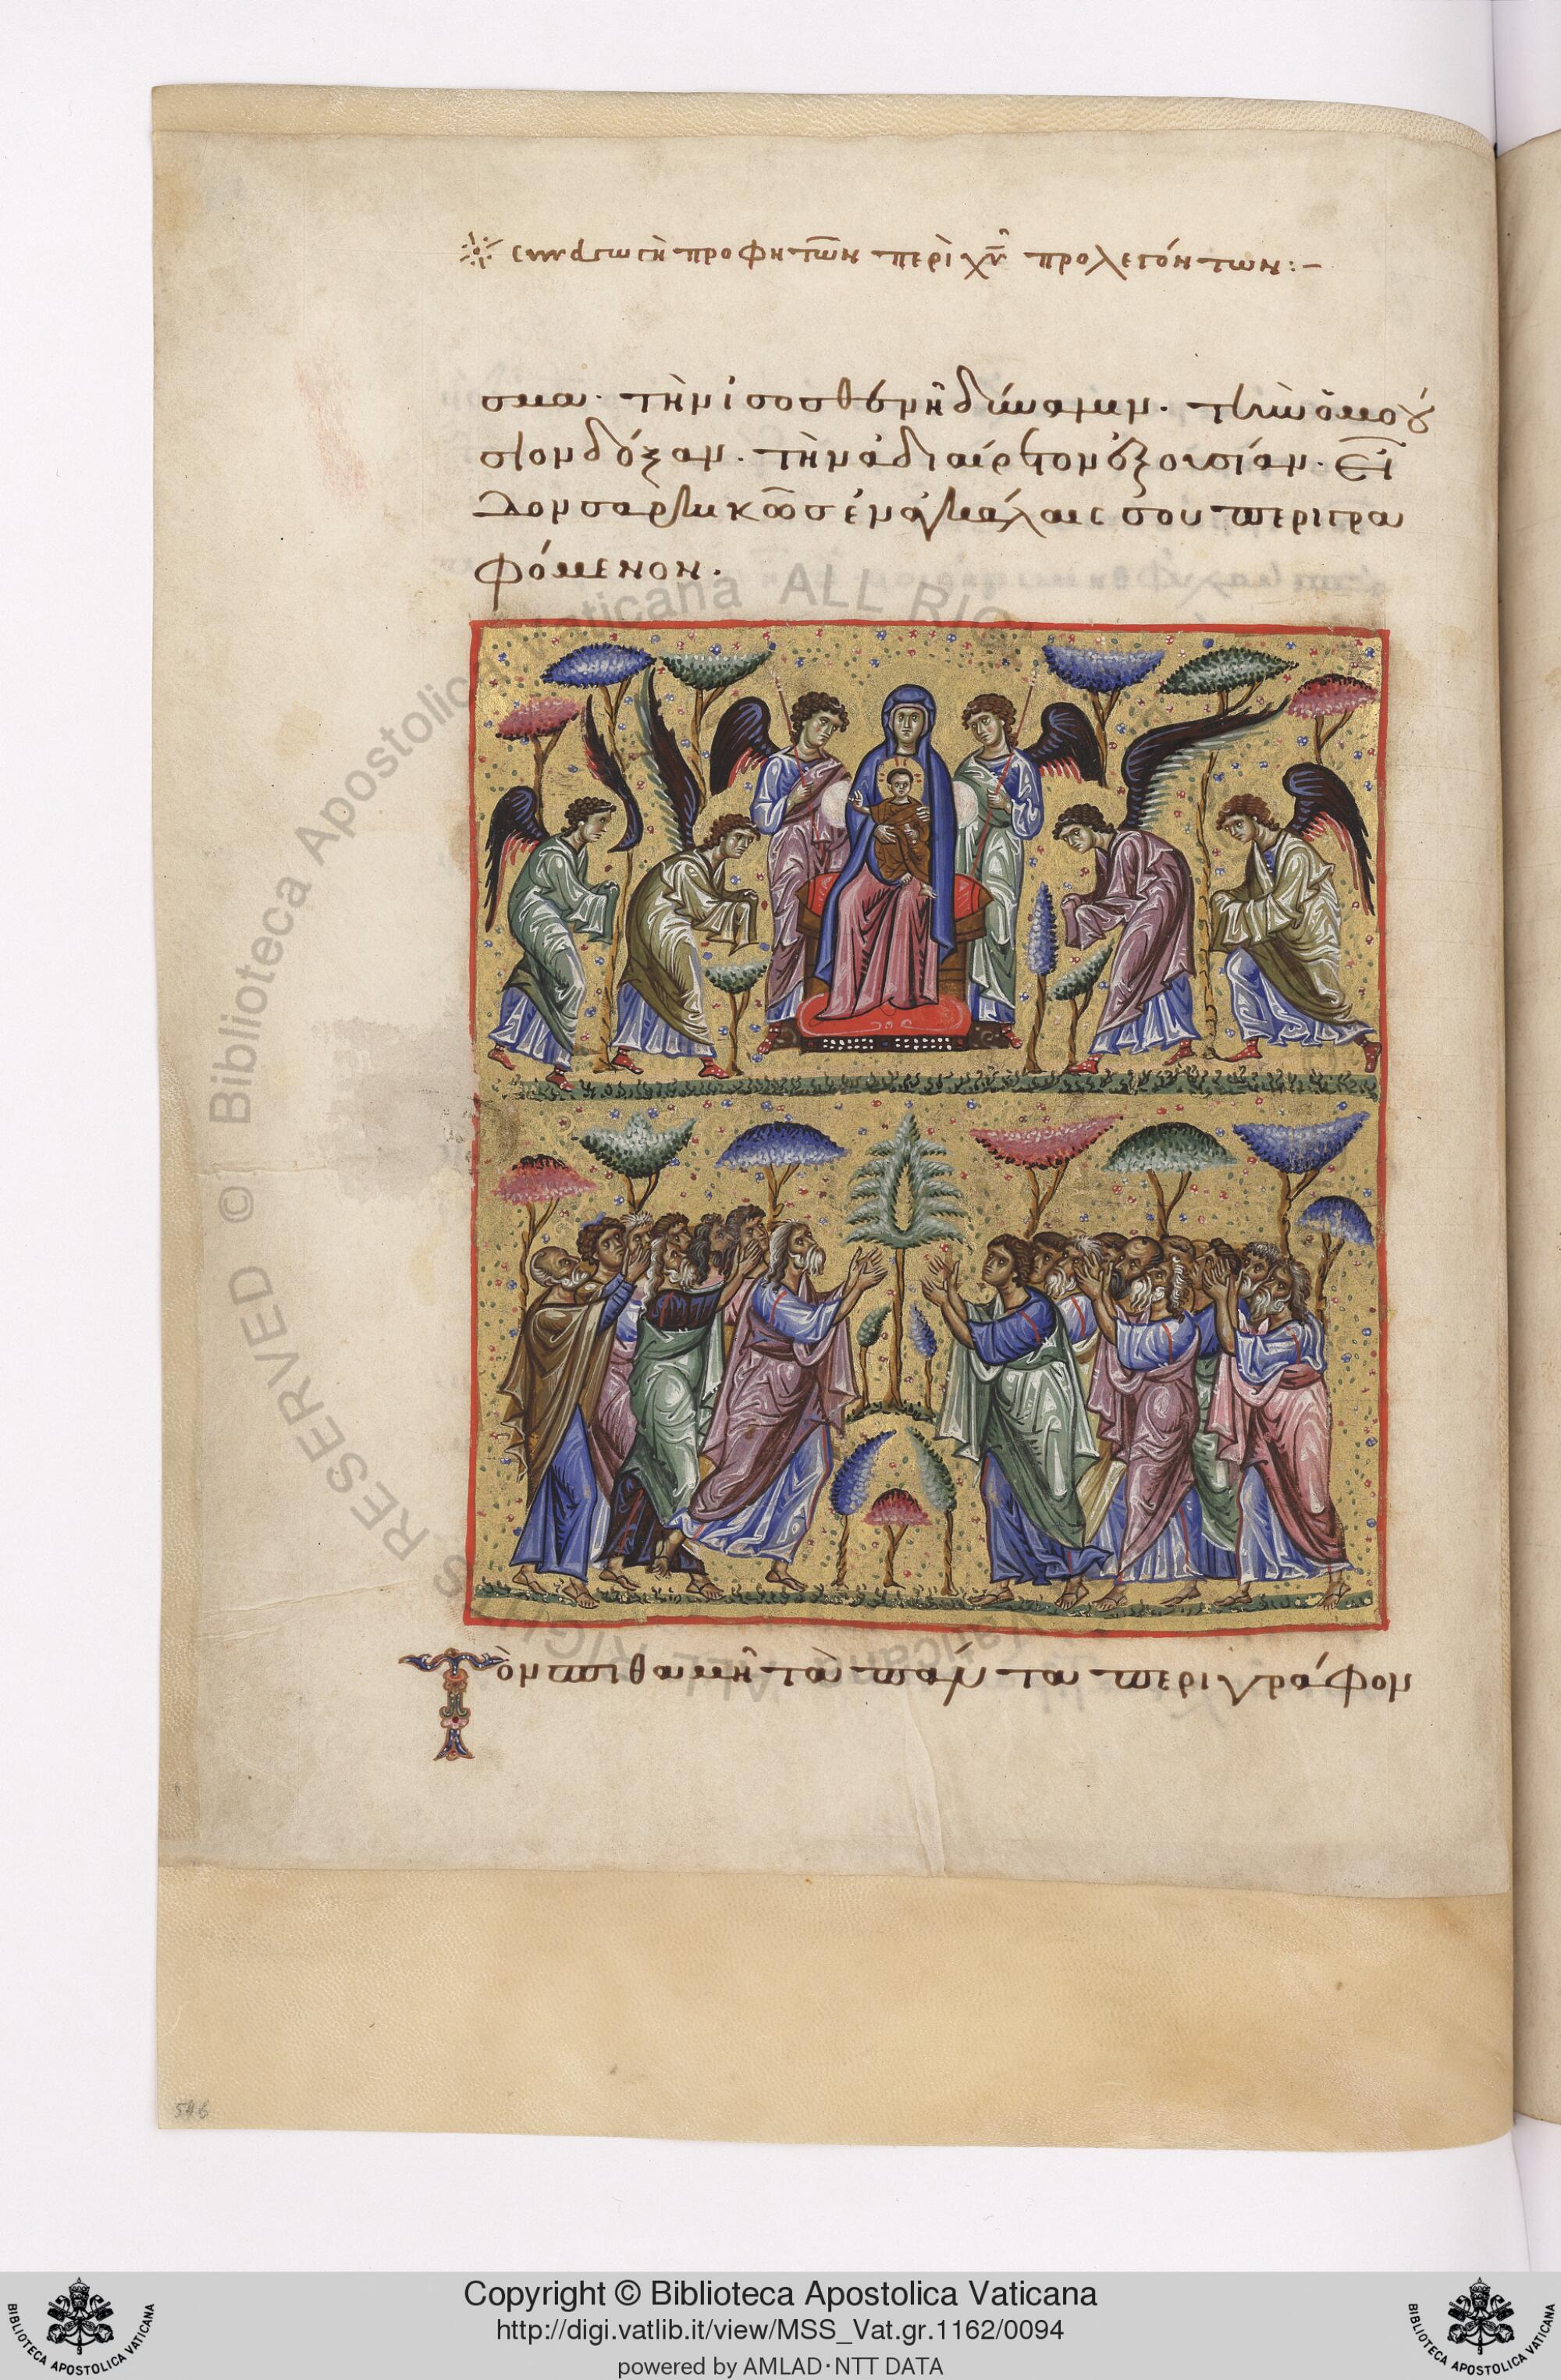 συναγωγὴ προφητῶν περὶ χυ προλεγόντων:–
σμα· τὴν ἰσοσθενῆ δύναμιν· τὴν ὁμοού
σιον δόξαν· τὴν ἀδιαίρετον ἐξουσίαν·
σαρκικῶς ἐν ἀγκάλαις σου περιγρα
φόμενον.
Τὸν σπιθαμῆ τὰ πάντα περιγράφον
546
© Biblioteca Apostolica Vaticana ALL RIGHTS RESERVED
Copyright © Biblioteca Apostolica Vaticana
http://digi.vatlib.it/view/MSS_Vat.gr.1162/0094
powered by AMLAD·NTT DATA
BIBLIOTECA APOSTOLICA VATICANA
BIBLIOTECA APOSTOLICA VATICANA